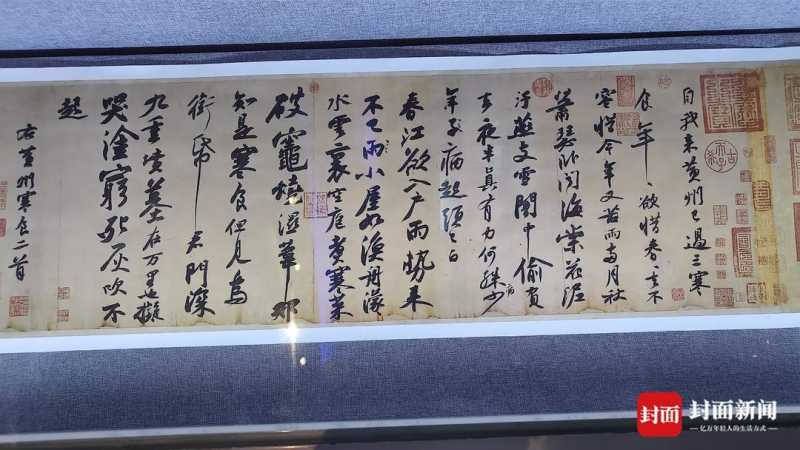 自我来黄州已過三寒
食年〻欲惜春〻去不
容惜今年又苦雨兩月秋
蕭瑟卧聞海棠花泥
汙燕支雪闇中偷負
去夜半真有力何殊少
年子病起頭已白
病
春江欲入户雨勢来
不已雨小屋如漁舟濛〻
水雲裏空庖煑寒菜
破竈燒濕葦那
知是寒食但見烏
銜帋君門深
九重墳墓在万里也擬
哭塗窮死灰吹不
起
右黄州寒食二首
封面 封面新闻
亿万年轻人的生活方式